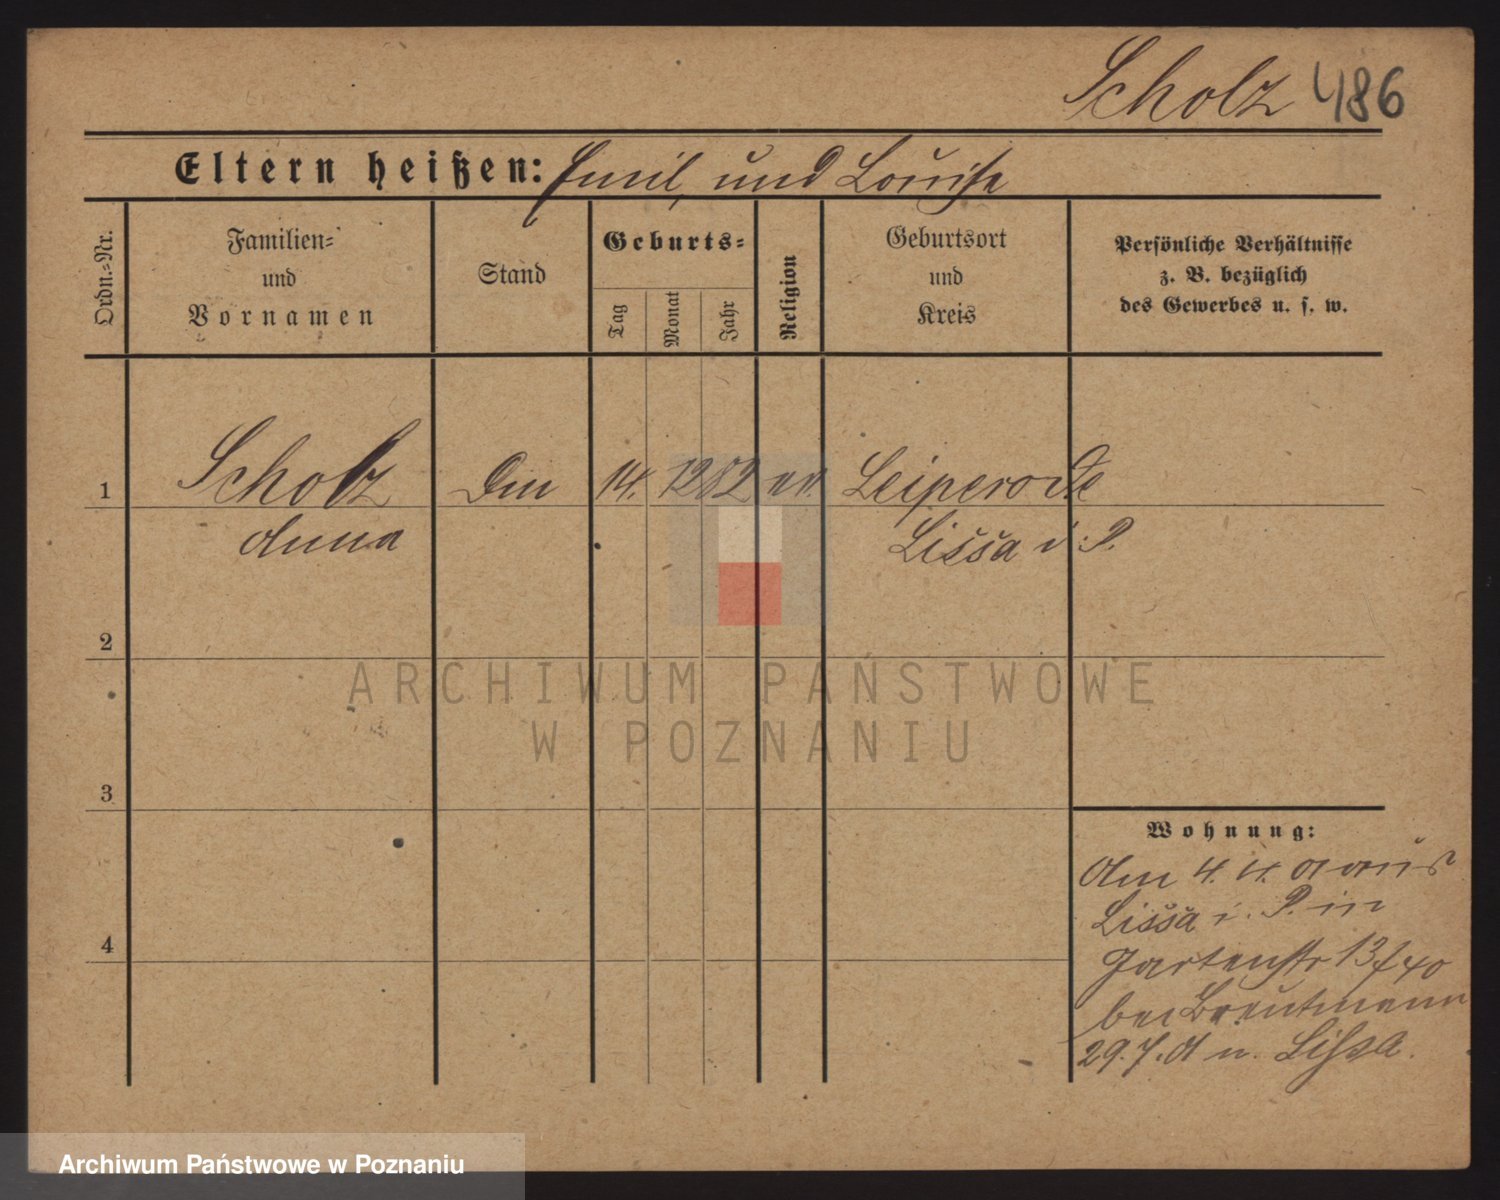 Scholz 486
Eltern heißen: Emil und Louise
Ordn.=Nr.
Familien=
und
Vornamen
Stand
Geburts=
Tag
Monat
Jahr
Religion
Geburtsort
und
Kreis
Persönliche Verhältnisse
z. B. bezüglich
des Gewerbes u. s. w.
1
Scholz Din 14. 12 82 ev. Leiperode
Anna Lissa i. P.
2
ARCHIWUM PAŃSTWOWE
W POZNANIU
3
Wohnung:
Am 4. 4. 01 aus
Lissa i. P. in
Gartenstr 13
bei
29.7.01 n. Lissa.
4
Archiwum Państwowe w Poznaniu